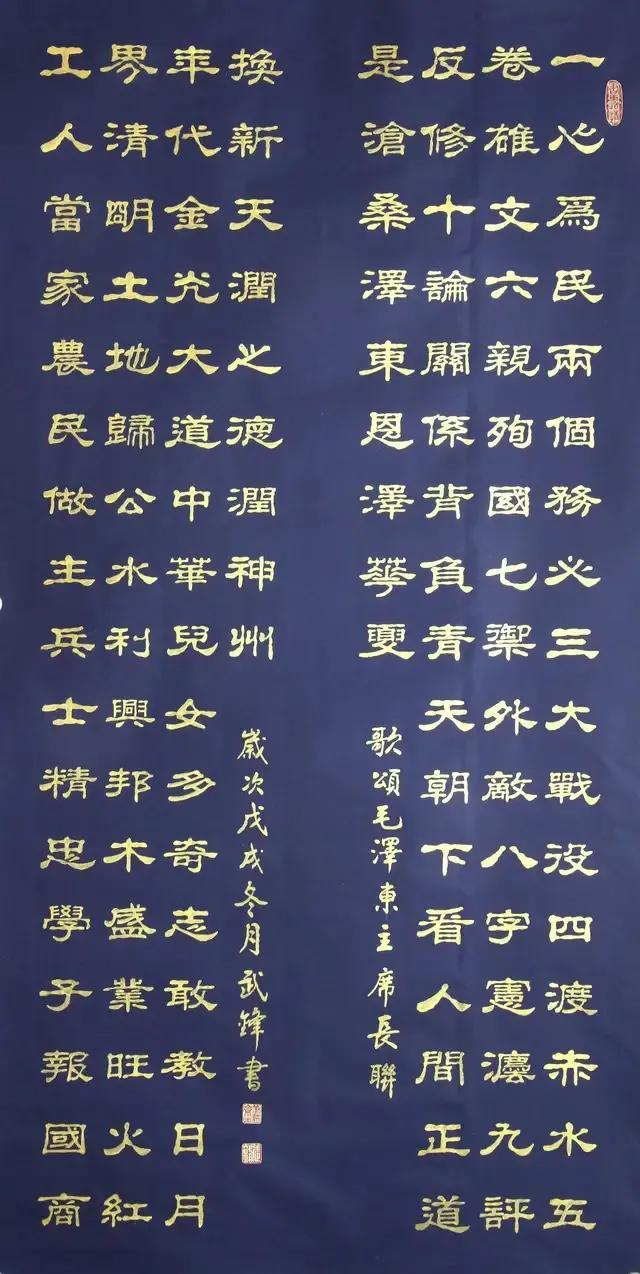 一心爲民兩個務必三大戰役四渡赤水五
卷雄文六親殉國七禦外敵八字憲灋九評
反修十論關係背負青天朝下看人間正道
是滄桑澤東恩澤華夏
歌頌毛澤東主席長聯
工人當家農民做主兵士精忠學子報國商
界清朙土地歸公水利興邦木盛業旺火紅
年代金光大道中華兒女多奇志敢教日月
換新天潤之德潤神州
歲次戊戌冬月武鋒書